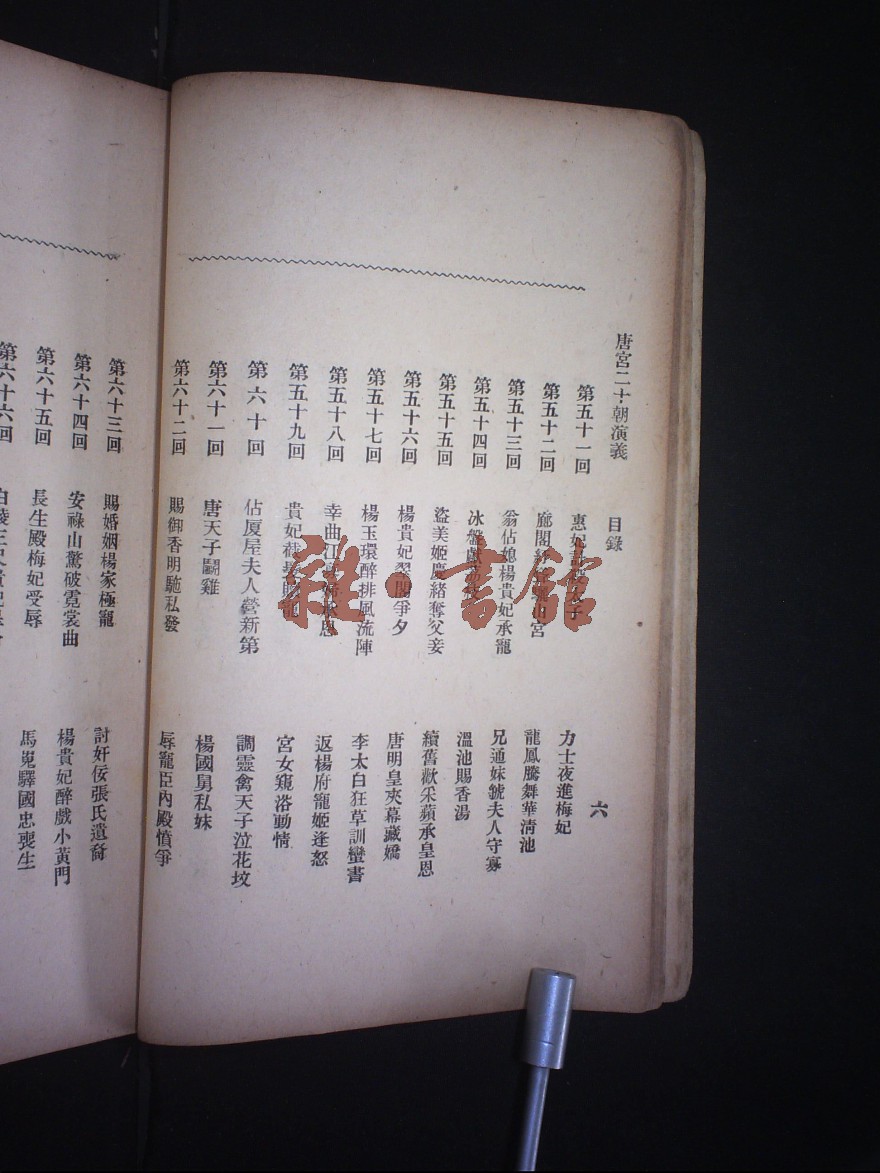 唐宮二十朝演義
目錄
六
第五十一回 惠妃 力士夜進梅妃
第五十二回 龍鳳騰舞華清池
第五十三回 翁佔媳楊貴妃承寵 兄通妹虢夫人守寡
第五十四回 冰盤 溫池賜香湯
第五十五回 盜美姬慶緒奪父妾 續舊歡采蘋承皇恩
第五十六回 楊貴妃翠閣爭夕 唐明皇夾幕藏嬌
第五十七回 楊玉環醉排風流陣 李太白狂草訓蠻書
第五十八回 幸曲江 返楊府寵姬逢怒
第五十九回 貴妃 宮女窺浴動情
第六十回 佔厦屋夫人營新第 調靈禽天子泣花坟
第六十一回 唐天子鬭雞 楊國舅私妹
第六十二回 賜御香明駝私發 辱寵臣內殿憤爭
第六十三回 賜婚姻楊家極寵 討奸佞張氏遺裔
第六十四回 安祿山驚破霓裳曲 楊貴妃醉戲小黃門
第六十五回 長生殿梅妃受辱 馬嵬驛國忠喪生
第六十六回
雜·書館